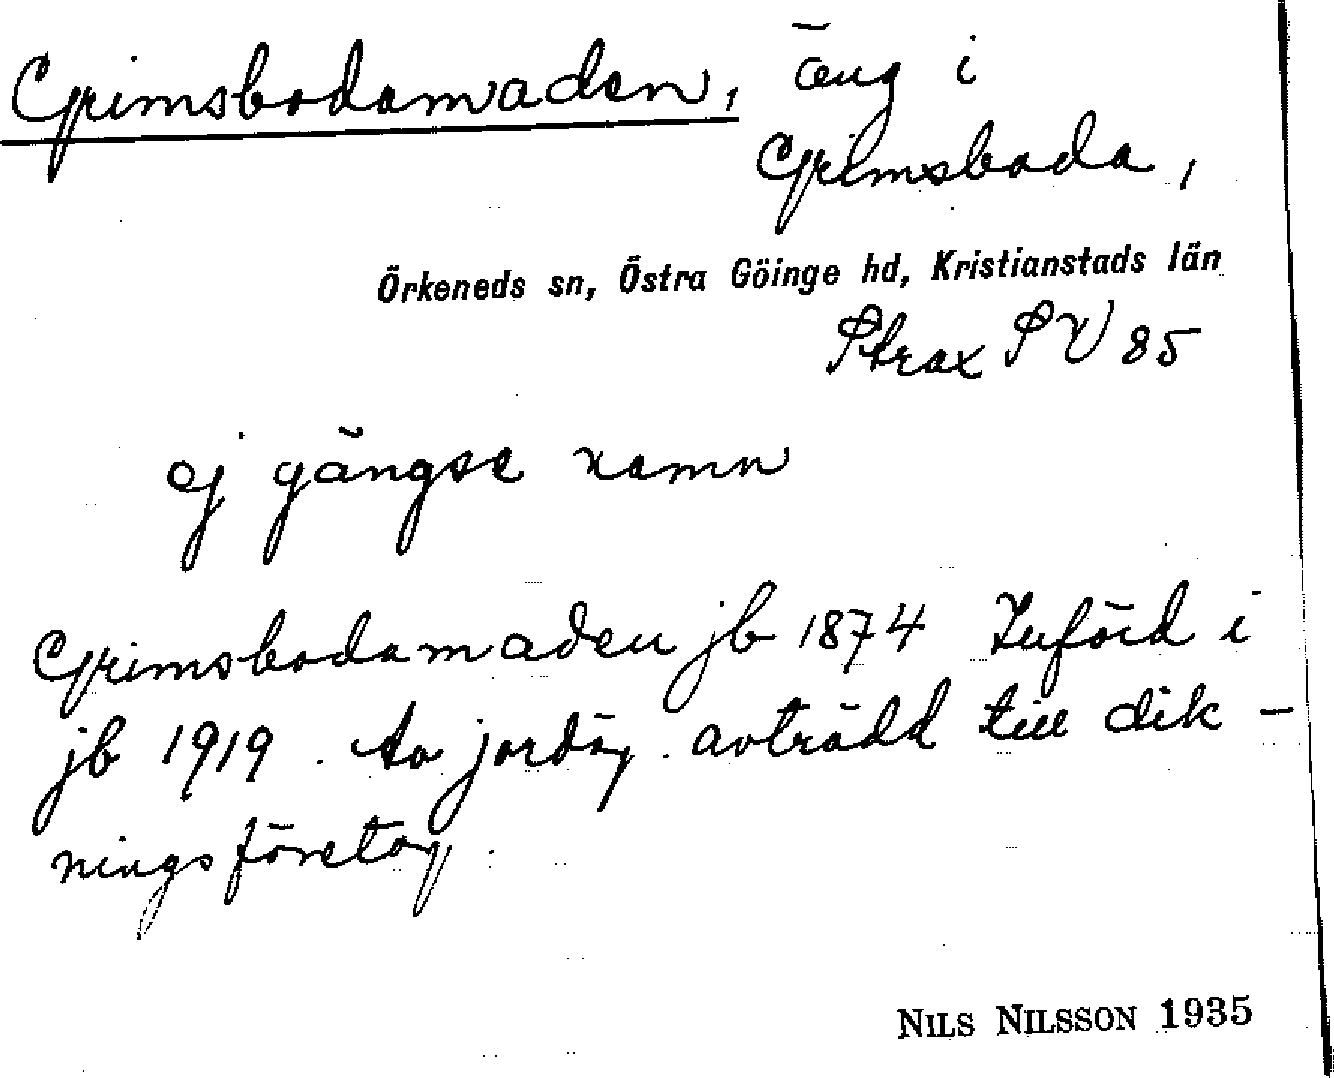 Grimsbodamaden, äng i
Grimsboda,
Örkeneds sn, Östra Göinge hd, Kristianstads län
Strax SV 85
ej gängse namn
Grimsbodamaden jb 1874 Införd i
jb 1919. Av jordäg. avträdd till dik-
ningsföretag.
NILS NILSSON 1935